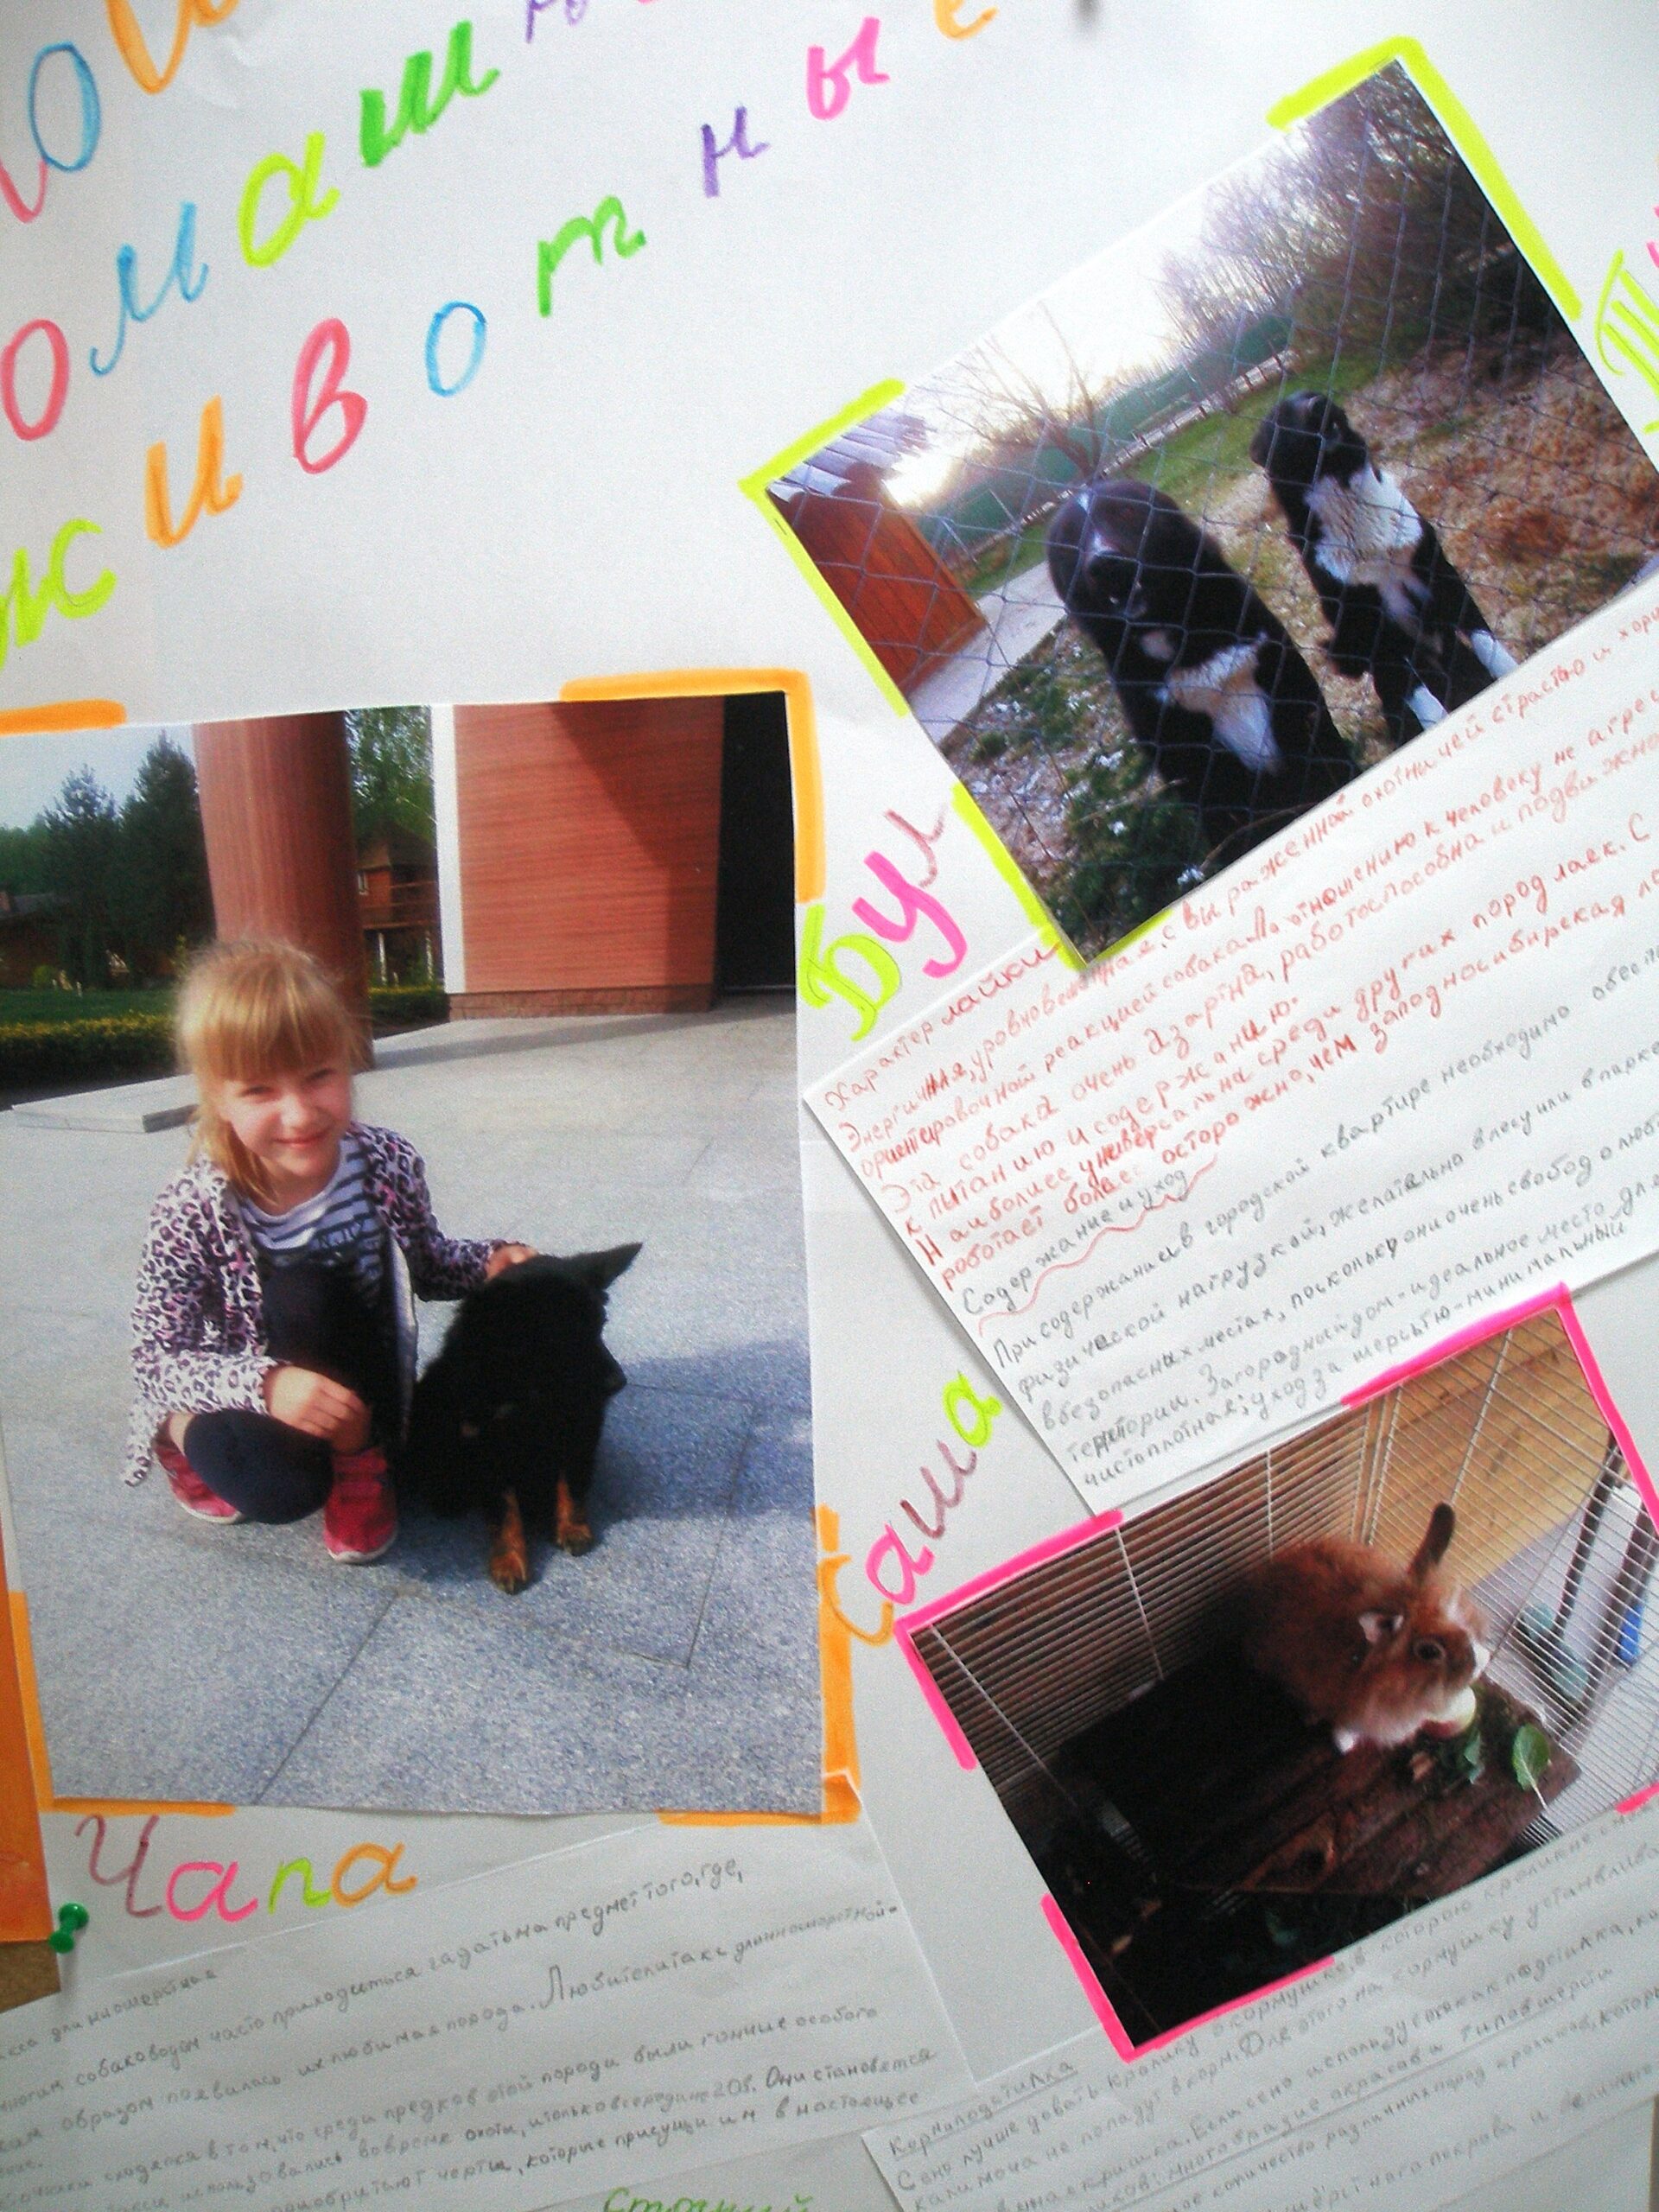 омашн
животные
Бул
Характер лайки
Энергичная, уровновешанная, с выраженной охотничей страстью и хоро
ориентировочной реакцией собака. По отношению к человеку не агрес
Эта собака очень азартна, работоспособна и подвижна
к питанию и содержанию.
Наиболее универсальна среди других пород лаек. С
роботает более осторожно, чем западносибирская ла
Содержание и уход
При содержание в городской квартире необходимо обесп
физической нагрузкой, желательно в лесу или в парке
в безопасных местах, поскольку они очень свободолюб
территории. Загородный дом - идеальное место для
чистоплотная; уход за шерстью - минимальный
Саша
Чапа
длинношерстная
многим собаководам часто приходиться гадать на предмет того, где,
ким образом появилась их любимая порода. Любители такс длинношерстной-
сходятся в том, что среди предков этой породы были гончие особого
использовались вовремя охоты, и только в середине 20в. Они становятся
приобритают черты, которые присущи им в настоящее
Корм и подстилка
Сено лучше давать кролику в кормушке, в которою кролик не см
калимоча не попадут в корм. Для этого на кормушку устанвлива
крышка. Если сено используется как подстилка, ко
ликов: многобразие окрасов и типов шерсти
ное количество различных пород кроликов, котор
шёрстного покрова и величине